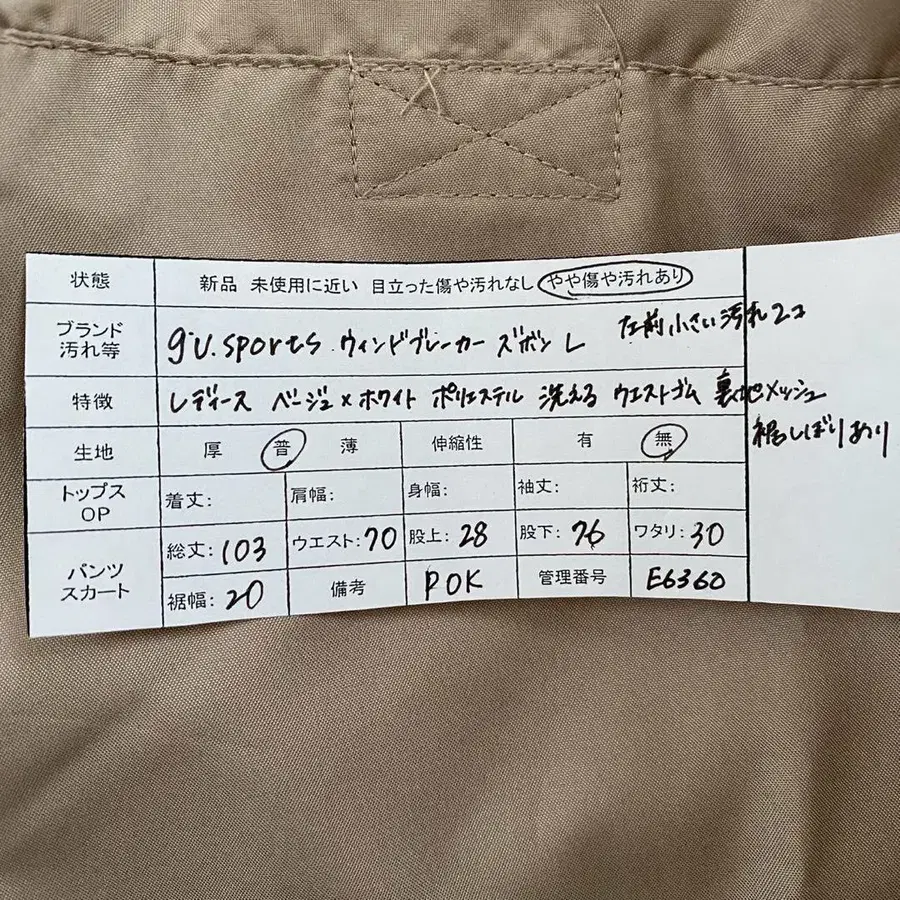 状態 新品 未使用に近い 目立った傷や汚れなし やや傷や汚れあり
ブランド 汚れ等 gu.sports ウィンドブレーカー ズボン L 左前小さい汚れ2コ
特徴 レディース ベージュ×ホワイト ポリエステル 洗える ウエストゴム 裏地メッシュ
裾しぼりあり
生地 厚 普 薄 伸縮性 有 無
トップス OP 着丈: 肩幅: 身幅: 袖丈: 裄丈:
パンツ スカート 総丈: 103 ウエスト: 70 股上: 28 股下: 76 ワタリ: 30
裾幅: 20 備考 POK 管理番号 E6360